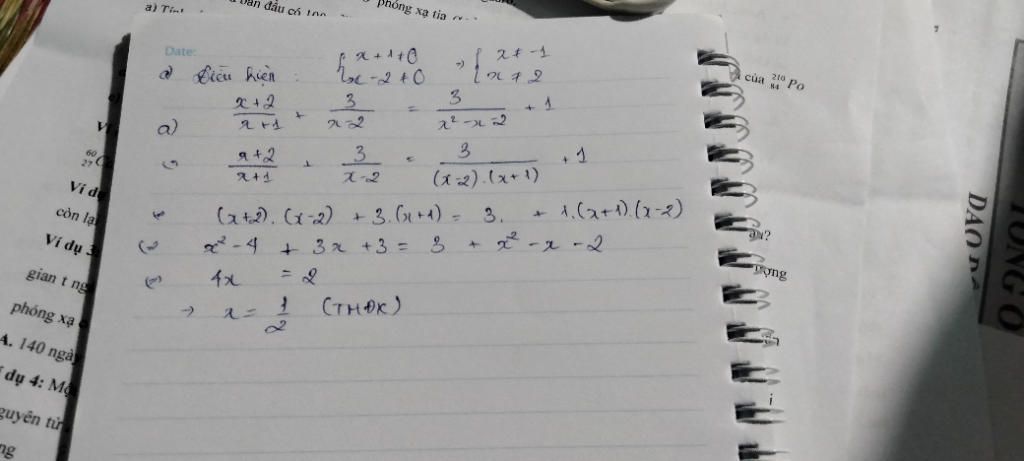 a) Tính
ban đầu có 100
phóng xạ tia
Date:
a) Điều kiện : { x + 1 ≠ 0 → { x ≠ -1
{ x - 2 ≠ 0 { x ≠ 2
a) (x+2)/(x+1) + 3/(x-2) = 3/(x² - x - 2) + 1
⇔ (x+2)/(x+1) + 3/(x-2) = 3/((x-2).(x+1)) + 1
⇔ (x+2).(x-2) + 3.(x+1) = 3. + 1.(x+1).(x-2)
⇔ x² - 4 + 3x + 3 = 3 + x² - x - 2
⇔ 4x = 2
→ x = 1/2 (TMĐK)
của ²¹⁰₈₄Po
⁶⁰₂₇C
Ví dụ
còn lại
Ví dụ 3
gian t ng
phóng xạ
A. 140 ngày
dụ 4: Mộ
guyên tử
ng
DAO